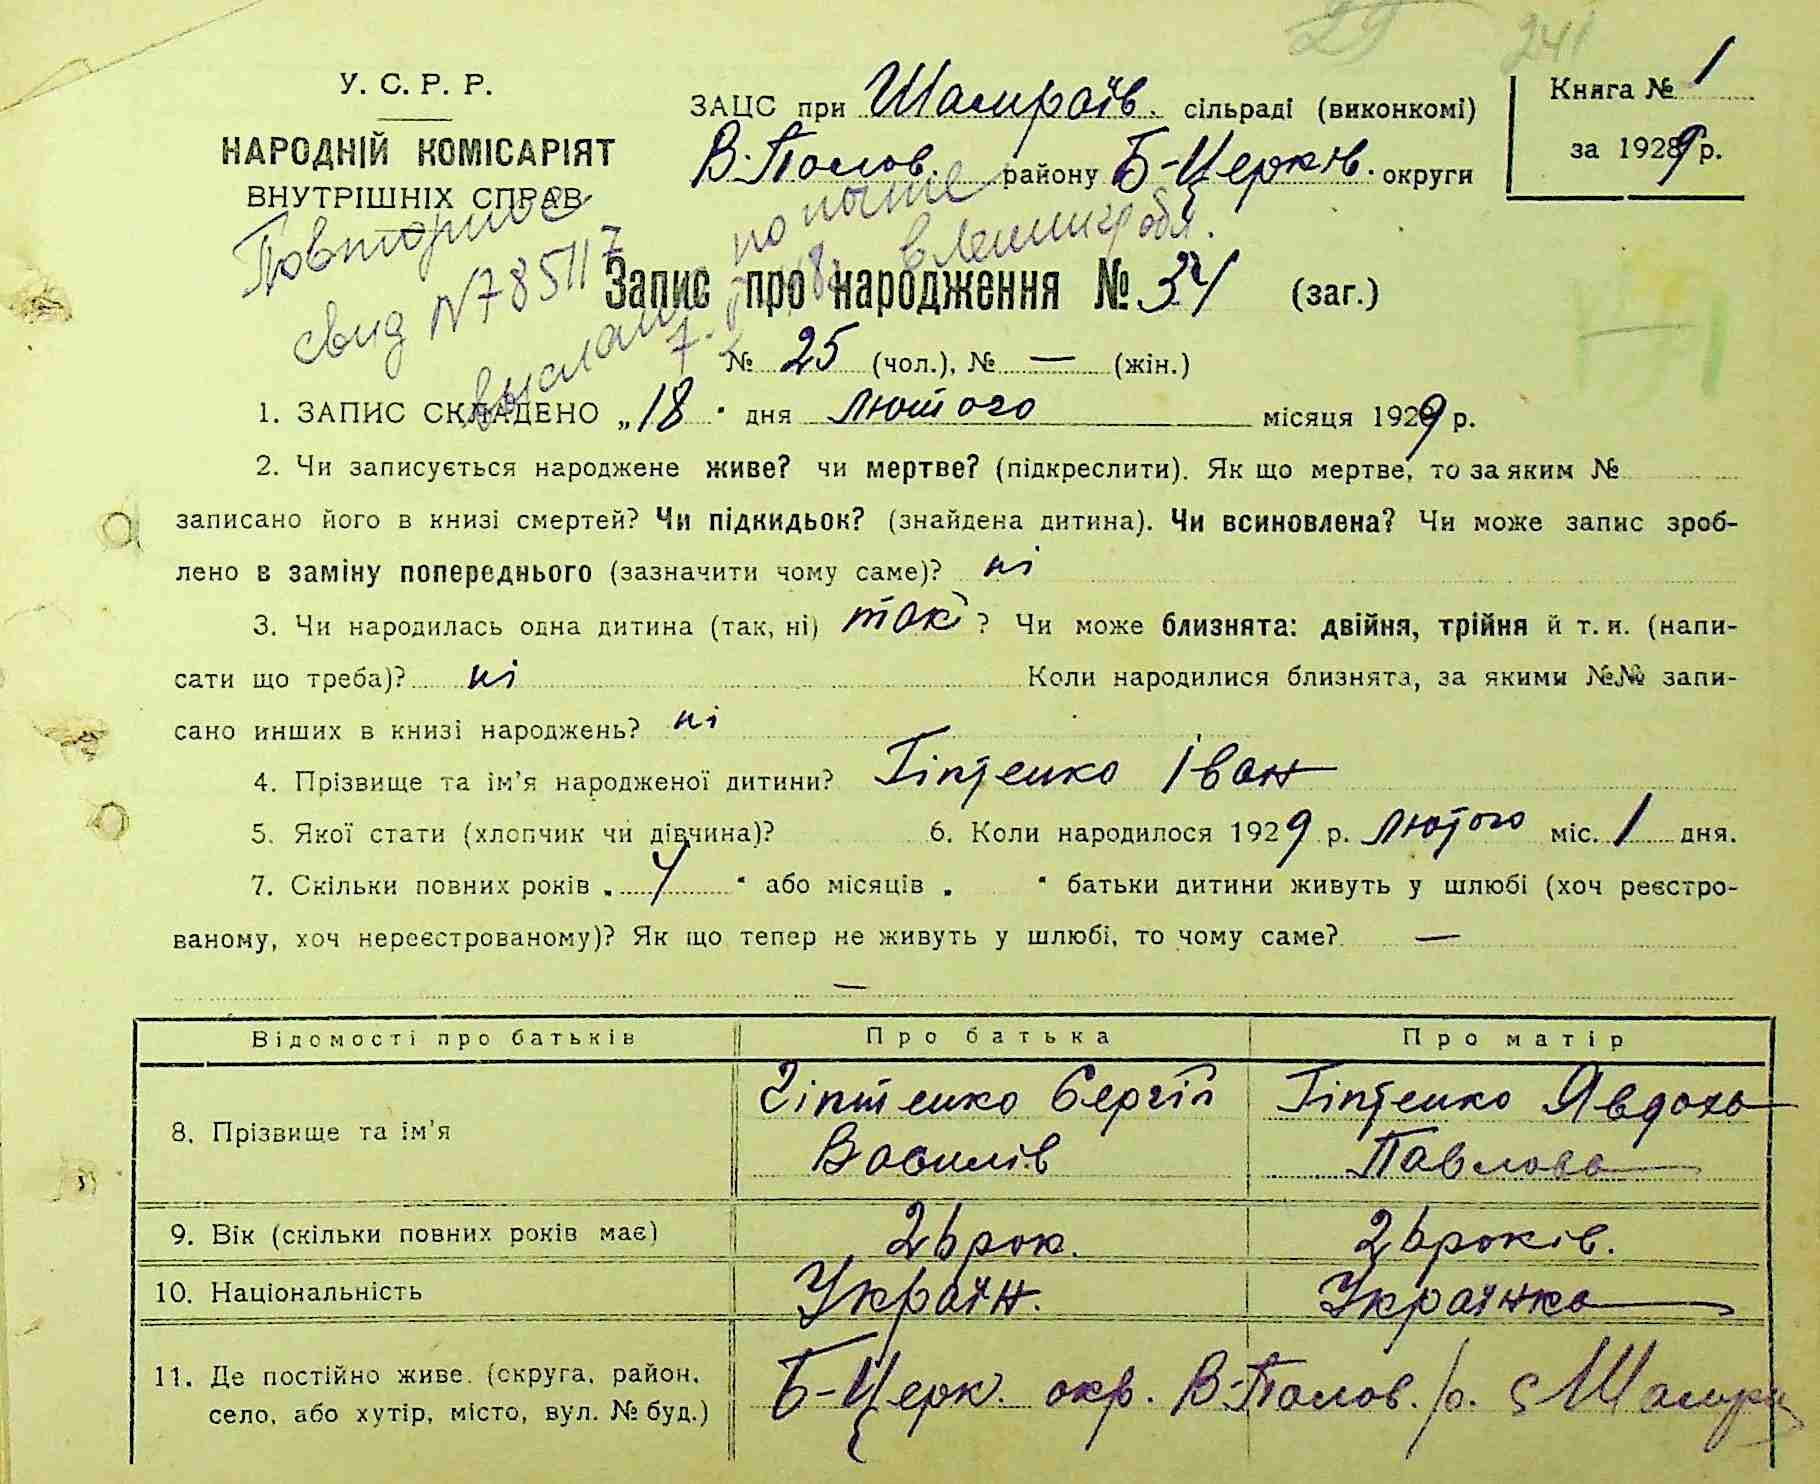 241
У. С. Р. Р.
НАРОДНІЙ КОМІСАРІЯТ
ВНУТРІШНІХ СПРАВ
ЗАЦС при Шамраїв. сільраді (виконкомі)
В-Полов. району Б-Церків. округи
Книга № 1
за 1929 р.
Повторное
свид N785117
выслан по почте
7. в Ленингр обл.
Запис про народження № 34 (заг.)
№ 25 (чол.), № — (жін.)
1. ЗАПИС СКЛАДЕНО „18" дня лютого місяця 1929 р.
2. Чи записується народжене живе? чи мертве? (підкреслити). Як що мертве, то за яким №
записано його в книзі смертей? Чи підкидьок? (знайдена дитина). Чи всиновлена? Чи може запис зроб-
лено в заміну попереднього (зазначити чому саме)? ні
3. Чи народилась одна дитина (так, ні) так? Чи може близнята: двійня, трійня й т. и. (напи-
сати що треба)? ні Коли народилися близнята, за якими №№ запи-
сано инших в книзі народжень? ні
4. Прізвище та ім'я народженої дитини? Гіптенко Іван
5. Якої стати (хлопчик чи дівчина)? 6. Коли народилося 1929 р. лютого міс. 1 дня.
7. Скільки повних років „ 4 " або місяців „ " батьки дитини живуть у шлюбі (хоч реєстро-
ваному, хоч нереєстрованому)? Як що тепер не живуть у шлюбі, то чому саме? —
—
Відомості про батьків Про батька Про матір
8. Прізвище та ім'я Гіптенко Сергій Василів Гіптенко Явдоха Павлова
9. Вік (скільки повних років має) 26 рок. 26 років.
10. Національність Україн. Українка
11. Де постійно живе (округа, район,
село, або хутір, місто, вул. № буд.) Б-Церк. окр. В-Полов. р. с Шамр